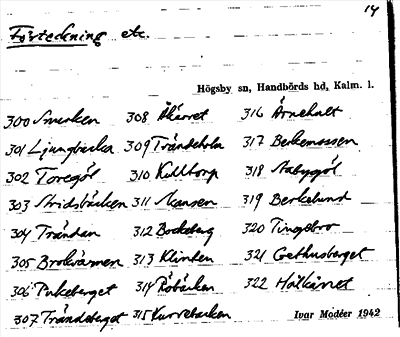 14
Förteckning etc.
Högsby sn, Handbörds hd, Kalm. l.
300 Smurken 308 Åkärret 316 Örnehult
301 Ljungbacka 309 Trändeholm 317 Berkemossen
302 Toregöl 310 Kulltorp 318 Nabbgöl
303 Stridsbäcken 311 Skansen 319 Berkelund
304 Trändan 312 Bockeberg 320 Tingsbro
305 Brokvarnen 313 Klinten 321 Gethusberget
306 Pukeberget 314 Röbäcken 322 Hålkärret
307 Trändeberget 315 Kurrebacken Ivar Modéer 1942